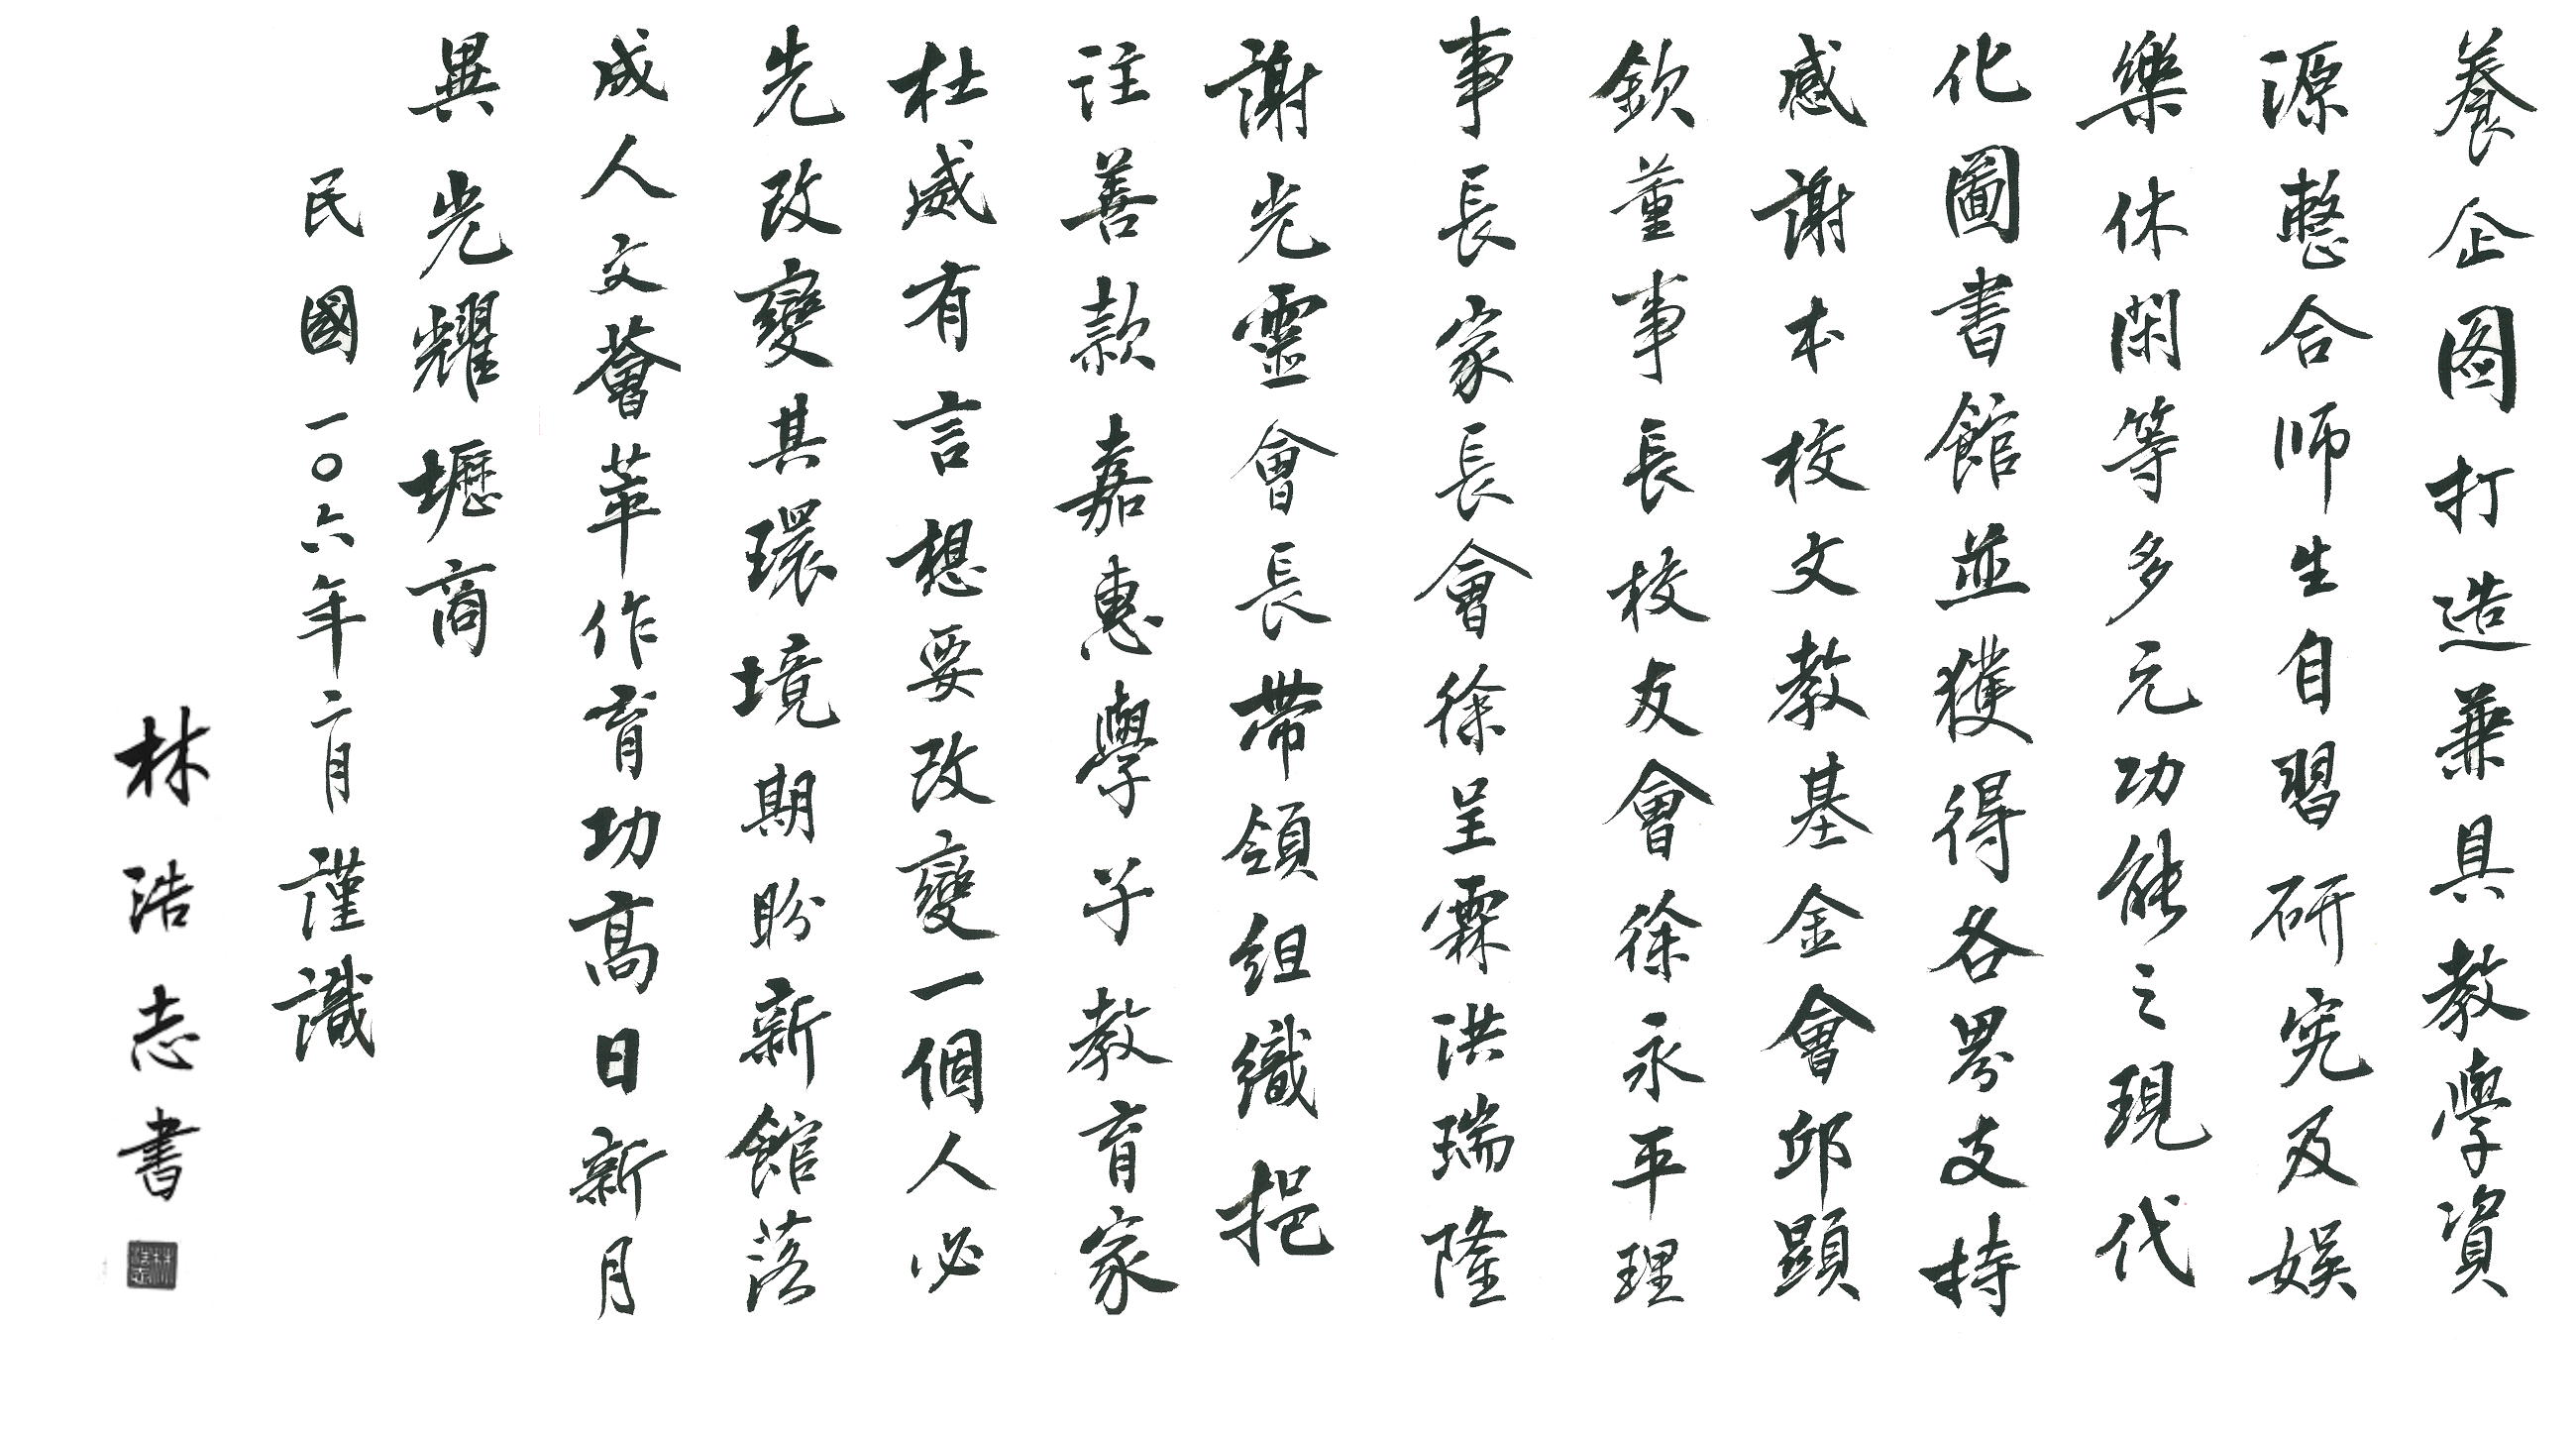 養企图打造兼具教學資
源整合师生自習研究及娱
樂休閑等多元功能之現代
化圖書館並獲得各界支持
感謝本校文教基金會邱顯
欽董事長校友會徐永平理
事長家長會徐呈霖洪瑞隆
謝光靈會長帶領組織挹
注善款嘉惠學子教育家
杜威有言想要改變一個人必
先改變其環境期盼新館落
成人文薈萃作育功高日新月
異光耀壢商
民國一〇六年二月謹識
林浩志書